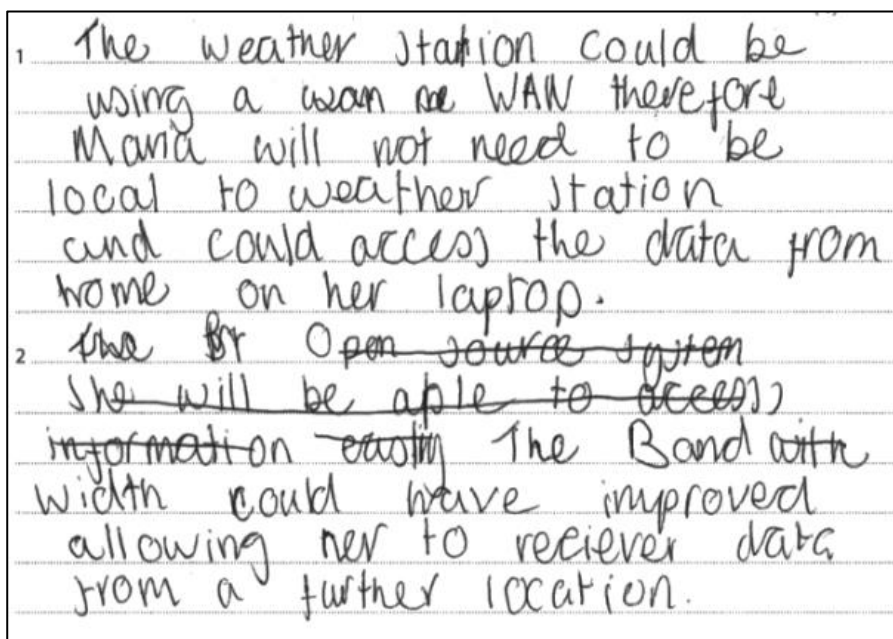 1 The weather station could be
using a wan WAN therefore
Maria will not need to be
local to weather station
and could access the data from
home on her laptop.
2 The Br Open source system
she will be aple to access
information easily The Band with
width could have improved
allowing her to reciever data
from a further location.